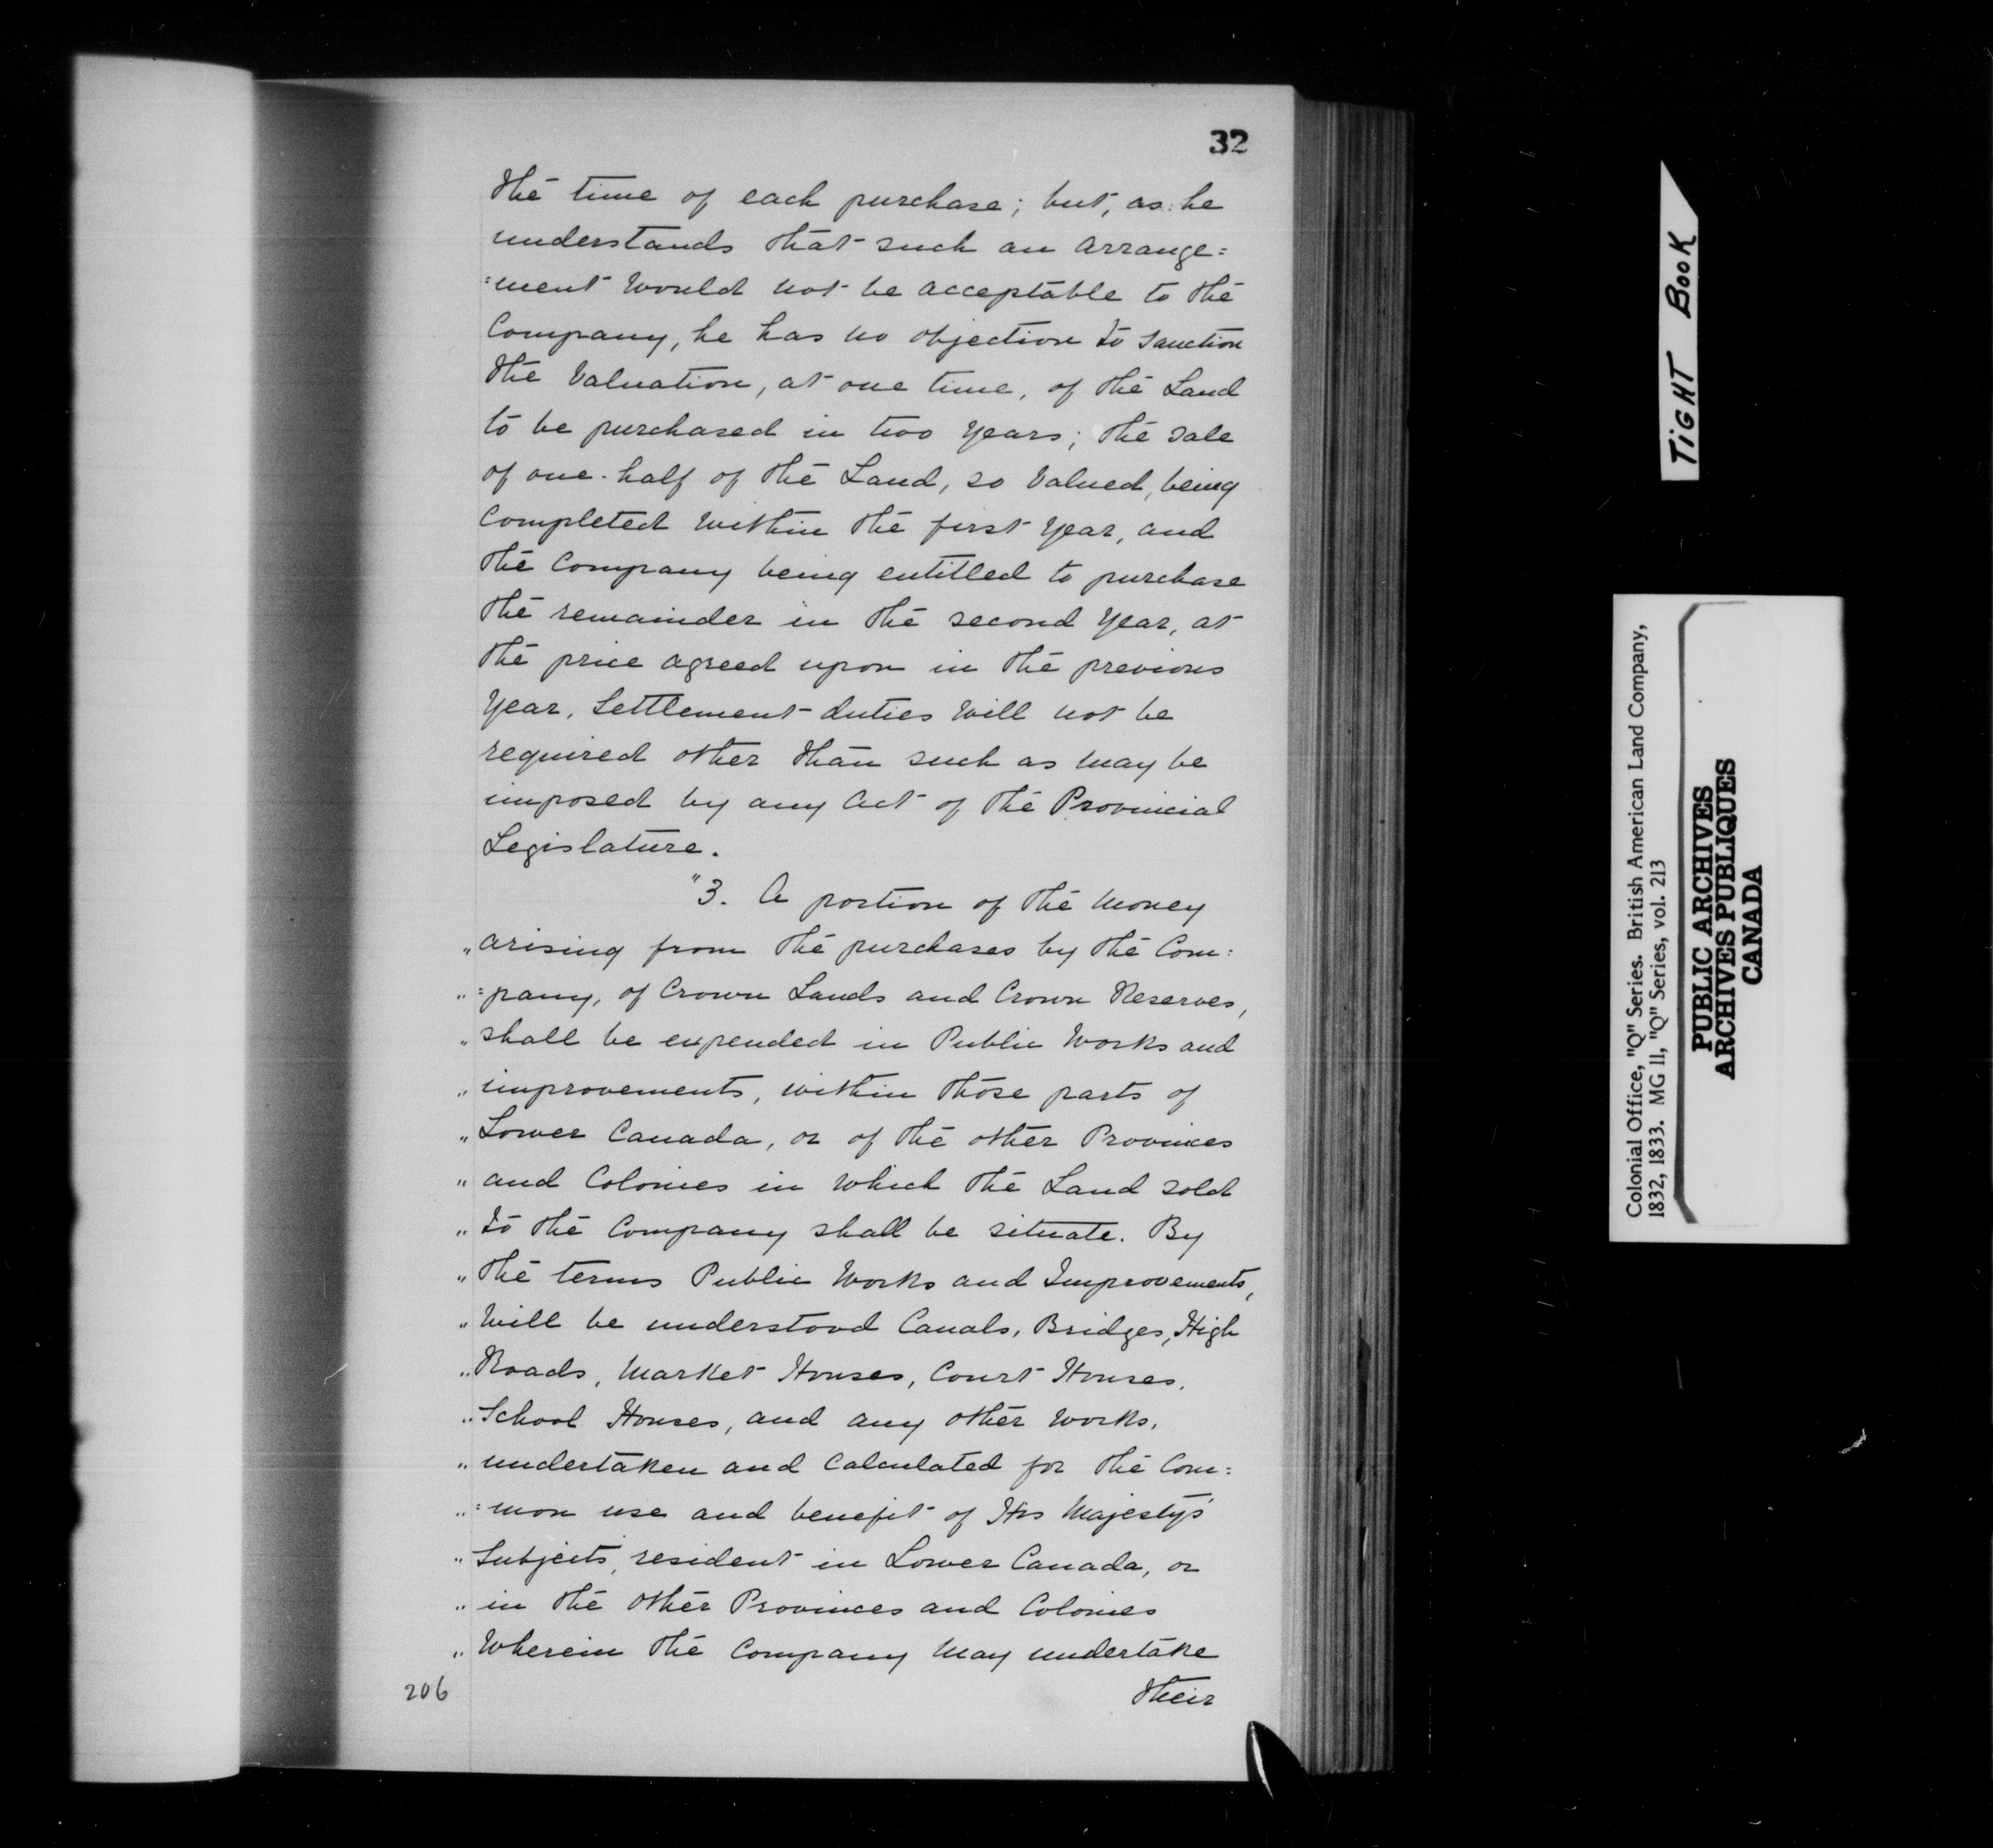 32
the time of each purchase; but, as he
understands that such an arrange=
=ment would not be acceptable to the
Company, he has no objection to sanction
the Valuation, at one time, of the Land
to be purchased in two years; the sale
of one-half of the Land, so valued, being
Completed within the first year, and
the Company being entitled to purchase
the remainder in the second year, at
the price agreed upon in the previous
year. Settlement duties will not be
required other than such as may be
imposed by any Act of the Provincial
Legislature.
"3. A portion of the money
" arising from the purchases by the Com=
" =pany, of Crown Lands and Crown Reserves,
" shall be expended in Public Works and
" improvements, within those parts of
" Lower Canada, or of the other Provinces
" and Colonies in which the Land sold
" to the Company shall be situate. By
" the terms Public Works and Improvements,
" will be understood Canals, Bridges, High
" Roads, Market Houses, Court Houses,
" School Houses, and any other works,
" undertaken and Calculated for the Com=
" =mon use and benefit of His Majesty's
" Subjects, resident in Lower Canada, or
" in the other Provinces and Colonies
" Wherein the Company may undertake
206
their
TIGHT BOOK
Colonial Office, "Q" Series. British American Land Company,
1832, 1833. MG 11, "Q" Series, vol. 213
PUBLIC ARCHIVES
ARCHIVES PUBLIQUES
CANADA